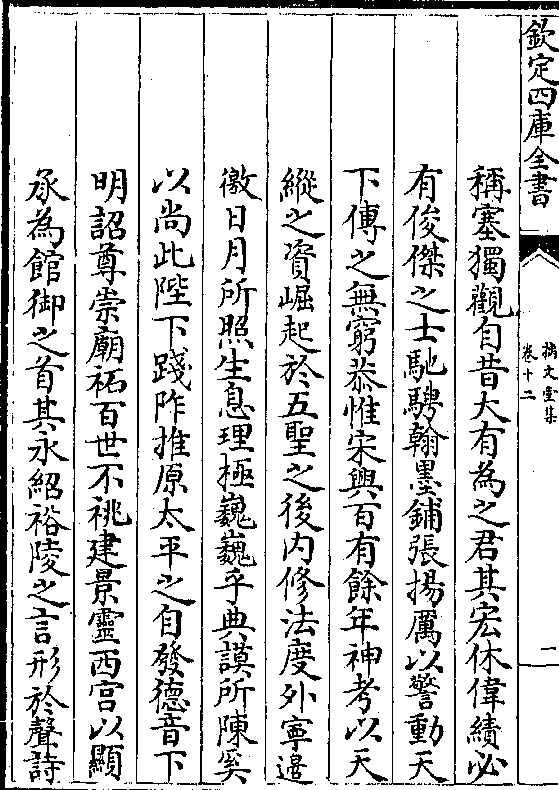 欽定四庫全書
摛文堂集
卷十二
一
稱塞獨觀自昔大有為之君其宏休偉績必
有俊傑之士馳騁翰墨鋪張揚厲以警動天
下傳之無窮恭惟宋興百有餘年神考以天
縱之資崛起於五聖之後内修法度外寧邊
徼日月所照生息理極巍巍乎典謨所陳奚
以尚此陛下踐阼推原太平之自發德音下
明詔尊崇廟祏百世不祧建景靈西宫以顯
承為館御之首其永紹裕陵之言形於聲詩